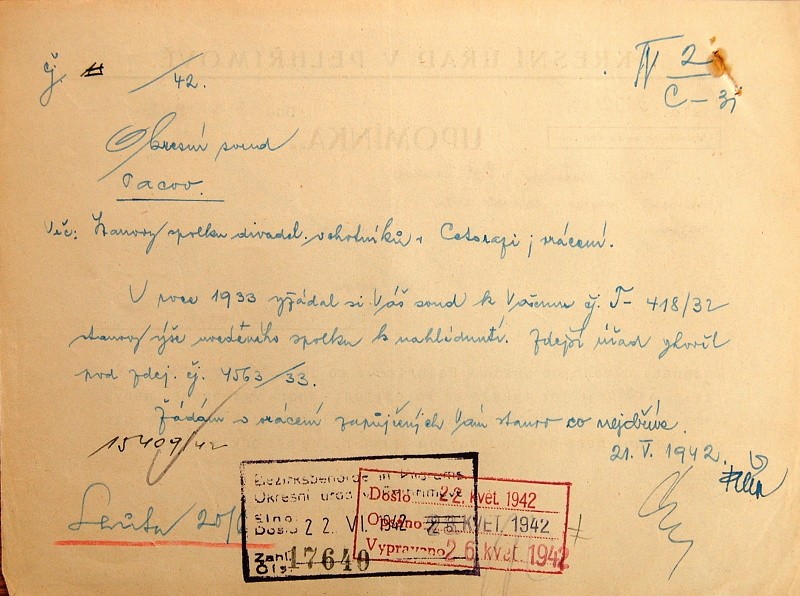 čj. /42.
IV 2
C-31
Okresní soud
Pacov.
Věc: Stanovy spolku divadel. ochotníků v Cetorazi; vrácení.
V roce 1933 vyžádal si Váš soud k Vašemu čj. T- 418/32
stanovy výše uvedeného spolku k nahlédnutí. Zdejší úřad vyhověl
pod zdej. čj. 4563/33.
Žádám o vrácení zapůjčených Vám stanov co nejdříve.
15409/42
21. V. 1942.
Lhůta 20/6
Bezirksbehörde in Pilgrams
Okresní úřad v Pelhřimově
Eing.
Došlo 22. VI. 1942
Zahl
Čís. 17640
Došlo 22. květ. 1942
Opsáno 28. KVĚT. 1942
Vypraveno 26. květ. 1942
OKRESNÍ ÚŘAD V PELHŘIMOVĚ
UPOMÍNKA.